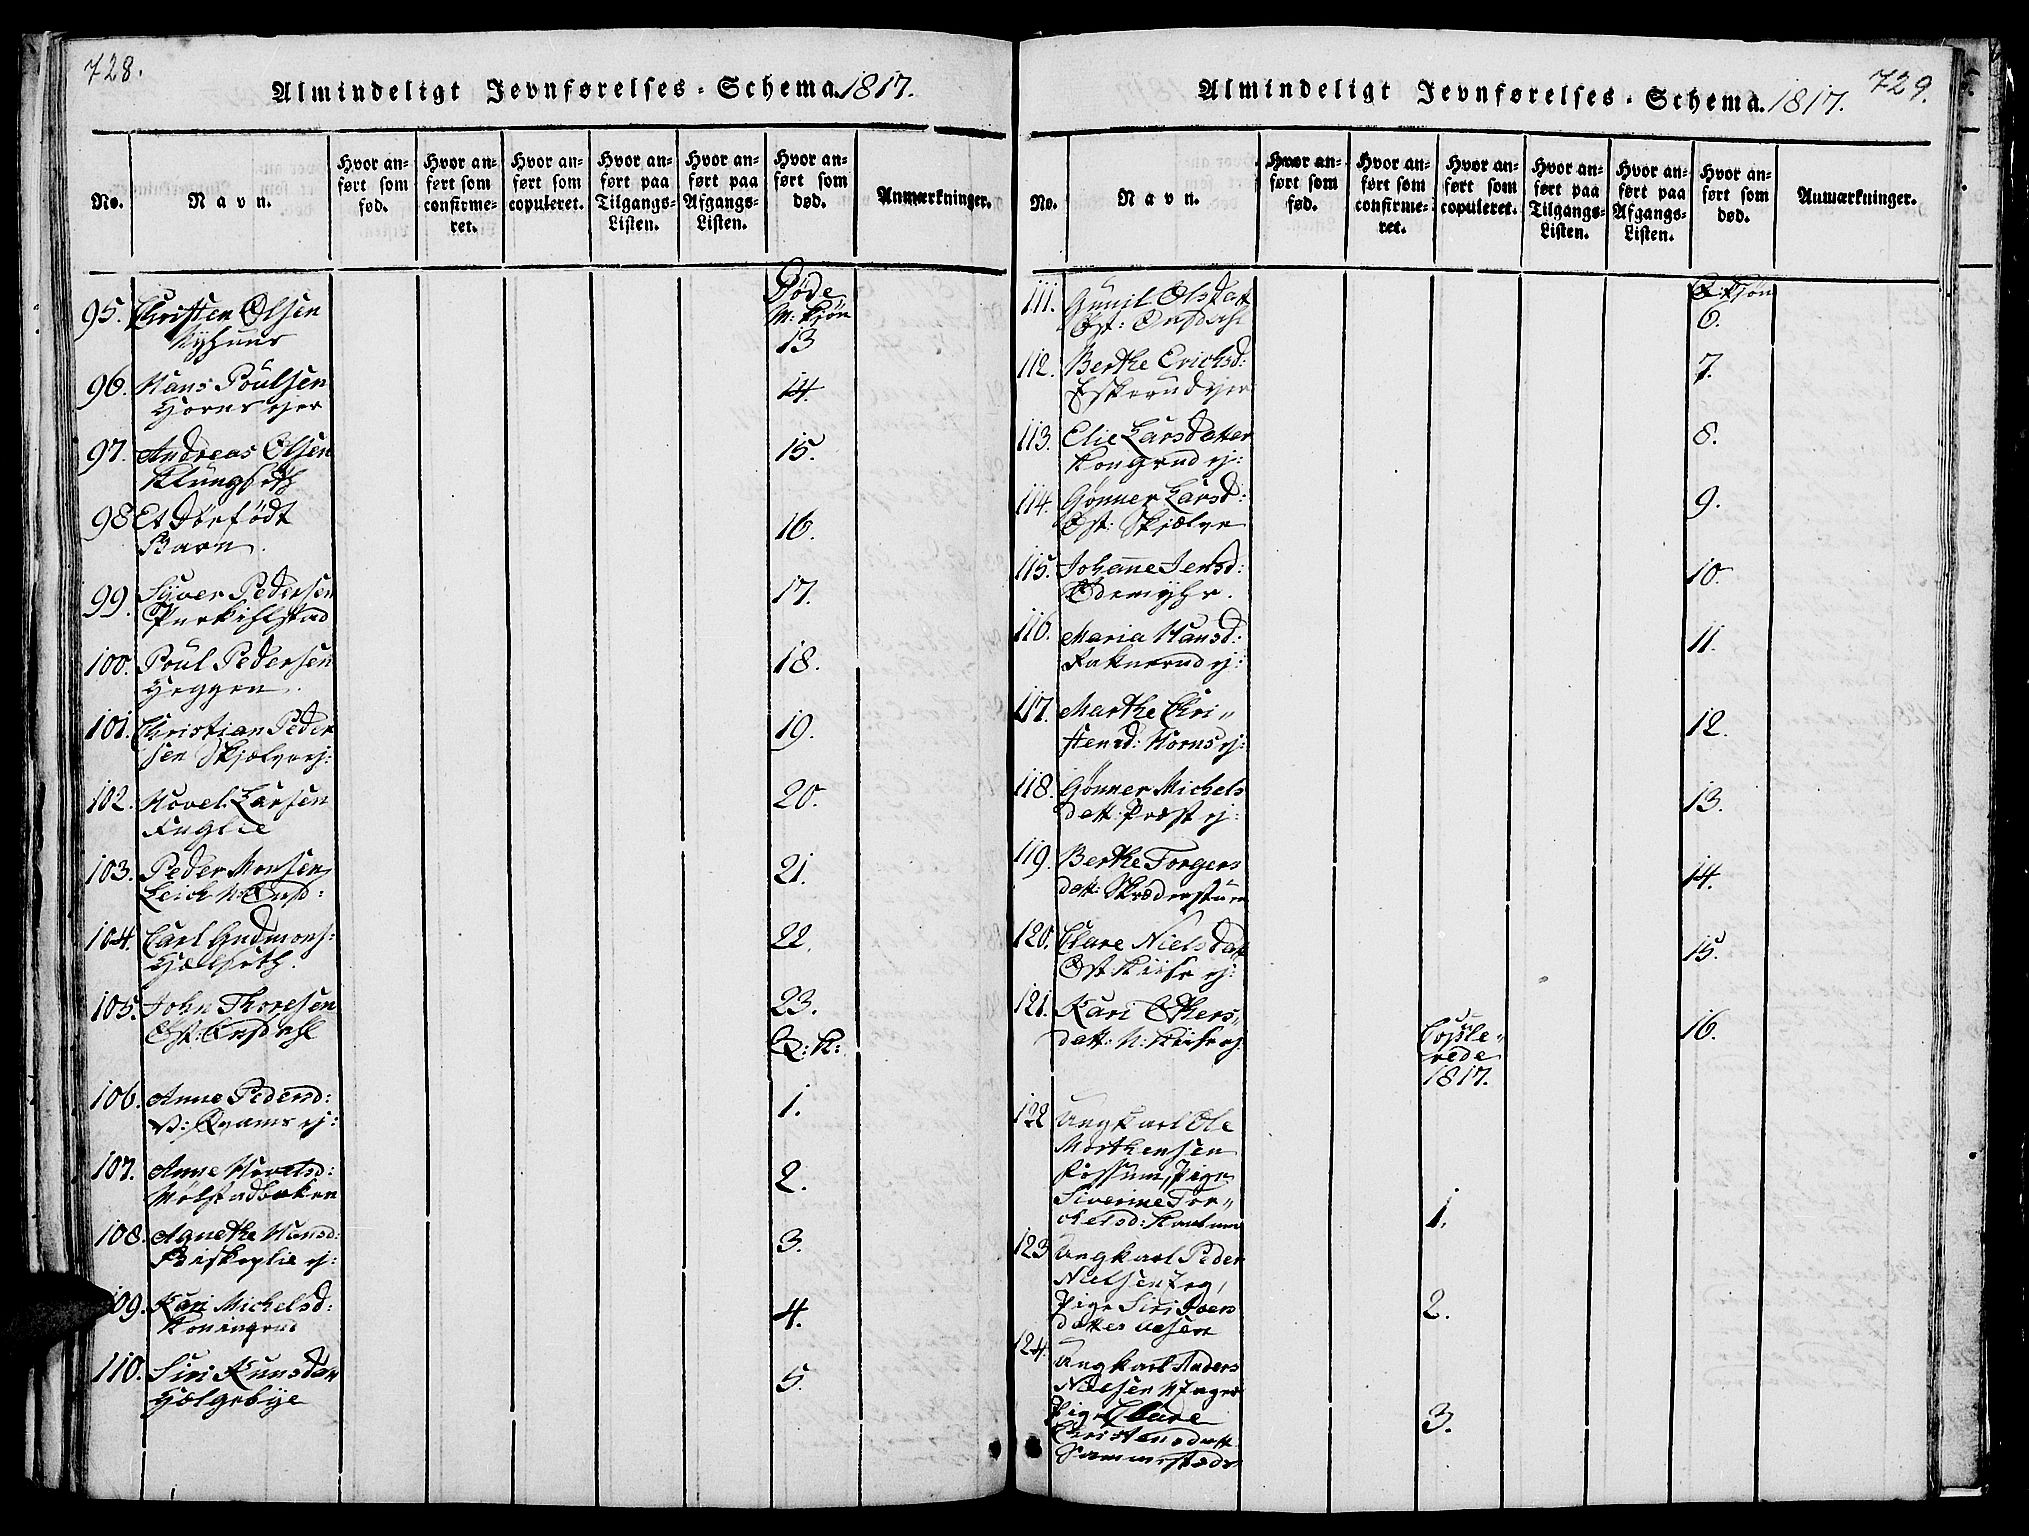 728.
Almindeligt Jevnførelses-Schema 1817.
No.
Navn.
Hvor an-
ført som
fød.
Hvor an-
ført som
confirme-
ret.
Hvor an-
ført som
copuleret.
Hvor an-
ført paa
Tilgangs-
Listen.
Hvor an-
ført paa
Afgangs-
Listen.
Hvor an-
ført som
død.
Anmærkninger.
Døde
M: Kjön
95. Christen Olsen
13
96. Hans Poulsen
Horns ejer
14.
97. Andreas Olsen
Klungseth
15.
98 Et Dødfödt
Barn.
16.
99. Syver Pedersen
17.
100. Poul Pedersen
Heggen.
18.
101. Christian Peder
sen Skjølv ej:
19.
102. Hovel Larsen
Fuglie
20.
103. Peder Monsen
21.
104. Carl Gudmons:
Hælseth.
22.
105. John Thoresen
Øst: Ensdahl
23.
Q: K:
106. Anne Pedersd:
V: Qvams ej:
1.
107. Anne Hovelsd:
Mølstadbakken
2.
108. Agnethe Hansd:
Biskoplie ej:
3.
109. Kari Michelsd:
4.
110. Siri Knudsdatt
Helgebye
5.
729.
Almindeligt Jevnførelses-Schema. 1817.
No.
Navn.
Hvor an-
ført som
fød.
Hvor an-
ført som
confirme-
ret.
Hvor an-
ført som
copuleret.
Hvor an-
ført paa
Tilgangs-
Listen.
Hvor an-
ført paa
Afgangs-
Listen.
Hvor an-
ført som
død.
Anmærkninger.
Q: Kjön
111. Gunil Olsdatt
Øst: Ensdahl
6.
112. Berthe Erichsd:
7.
113. Elie Larsdatter
Kongrud ej:
8.
114. Gønner Larsd:
Øst: Skjølve
9.
115. Johanne Jensd:
10.
116. Maria Hansd:
Faknerud ej:
11.
117. Marthe Chri„
stensd: Horns ej:
12.
118. Gønner Michels
datt: Præst ej:
13.
119. Berthe Torgers
datt: Skræderstuen
14.
120. Clare Nielsdatt
Øst Kiise ej:
15.
121. Kari Others„
datt: N: Kiise ej.
16.
Copule„
rede
1817.
122 Ungkarl Ole
Morthensen
Fossum, Pige
Siverine Tor„
chelsd:
1.
123 Ungkarl Peder
Nielsen
Pige Siri Iver
datter Aasen
2.
124. Ungkarl Anders
Nielsen
Pige Clare
Christensdatt
3.